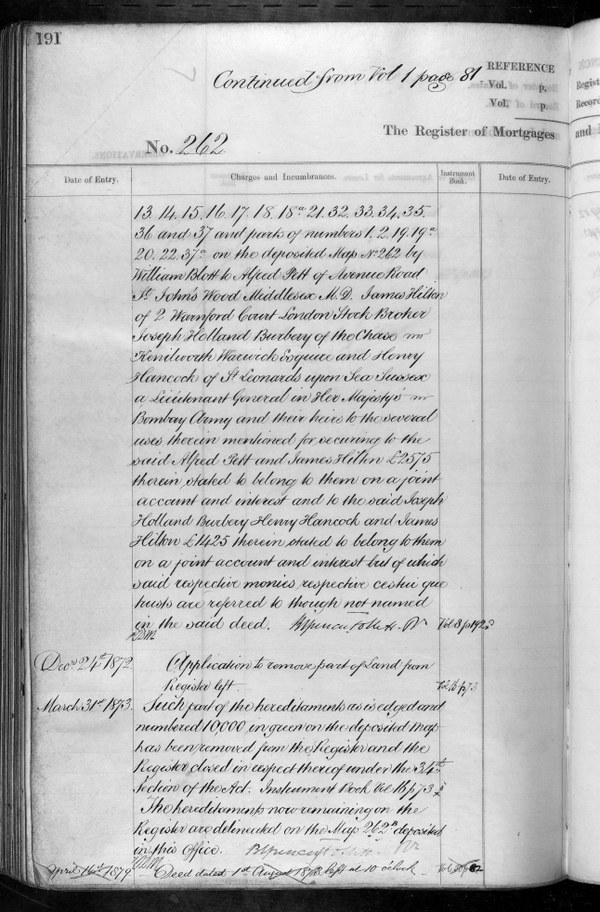 191
Continued from Vol 1 page 81
REFERENCE
Vol. p.
Vol. p.
The Register of Mortgages
No. 262
Date of Entry.
Charges and Incumbrances.
Instrument Book.
Date of Entry.
13. 14. 15. 16. 17. 18. 18ᵃ 21. 32. 33. 34. 35.
36 and 37 and parts of numbers 1. 2. 19. 19ᵃ
20. 22. 37ᵃ on the deposited Map Nº 262 by
William Blott to Alfred Pett of Avenue Road
St John's Wood Middlesex M.D. James Hilton
of 2 Warnford Court London Stock Broker
Joseph Holland Burbery of the Chase in
Kenilworth Warwick Esquire and Henry
Hancock of St Leonards upon Sea Sussex
a Lieutenant General in Her Majesty's
Bombay Army and their heirs to the several
uses therein mentioned for securing to the
said Alfred Pett and James Hilton £2575
therein stated to belong to them on a joint
account and interest and to the said Joseph
Holland Burbery Henry Hancock and James
Hilton £1425 therein stated to belong to them
on a joint account and interest but of which
said respective monies respective cestui que
trusts are referred to though not named
in the said deed.
Decr 24th 1872
Application to remove part of Land from
Register left
Vol 16 p 73
March 31st 1873.
Such part of the hereditaments as is edged and
numbered 10000 in green on the deposited Map
has been removed from the Register and the
Register closed in respect thereof under the 34th
Section of the Act. Instrument Book Vol 16 p 73
The hereditaments now remaining on the
Register are delineated on the Map 262ᴮ deposited
in this Office.
April 16th 1879
Deed dated 1st August 1878 left at 10 o'clock